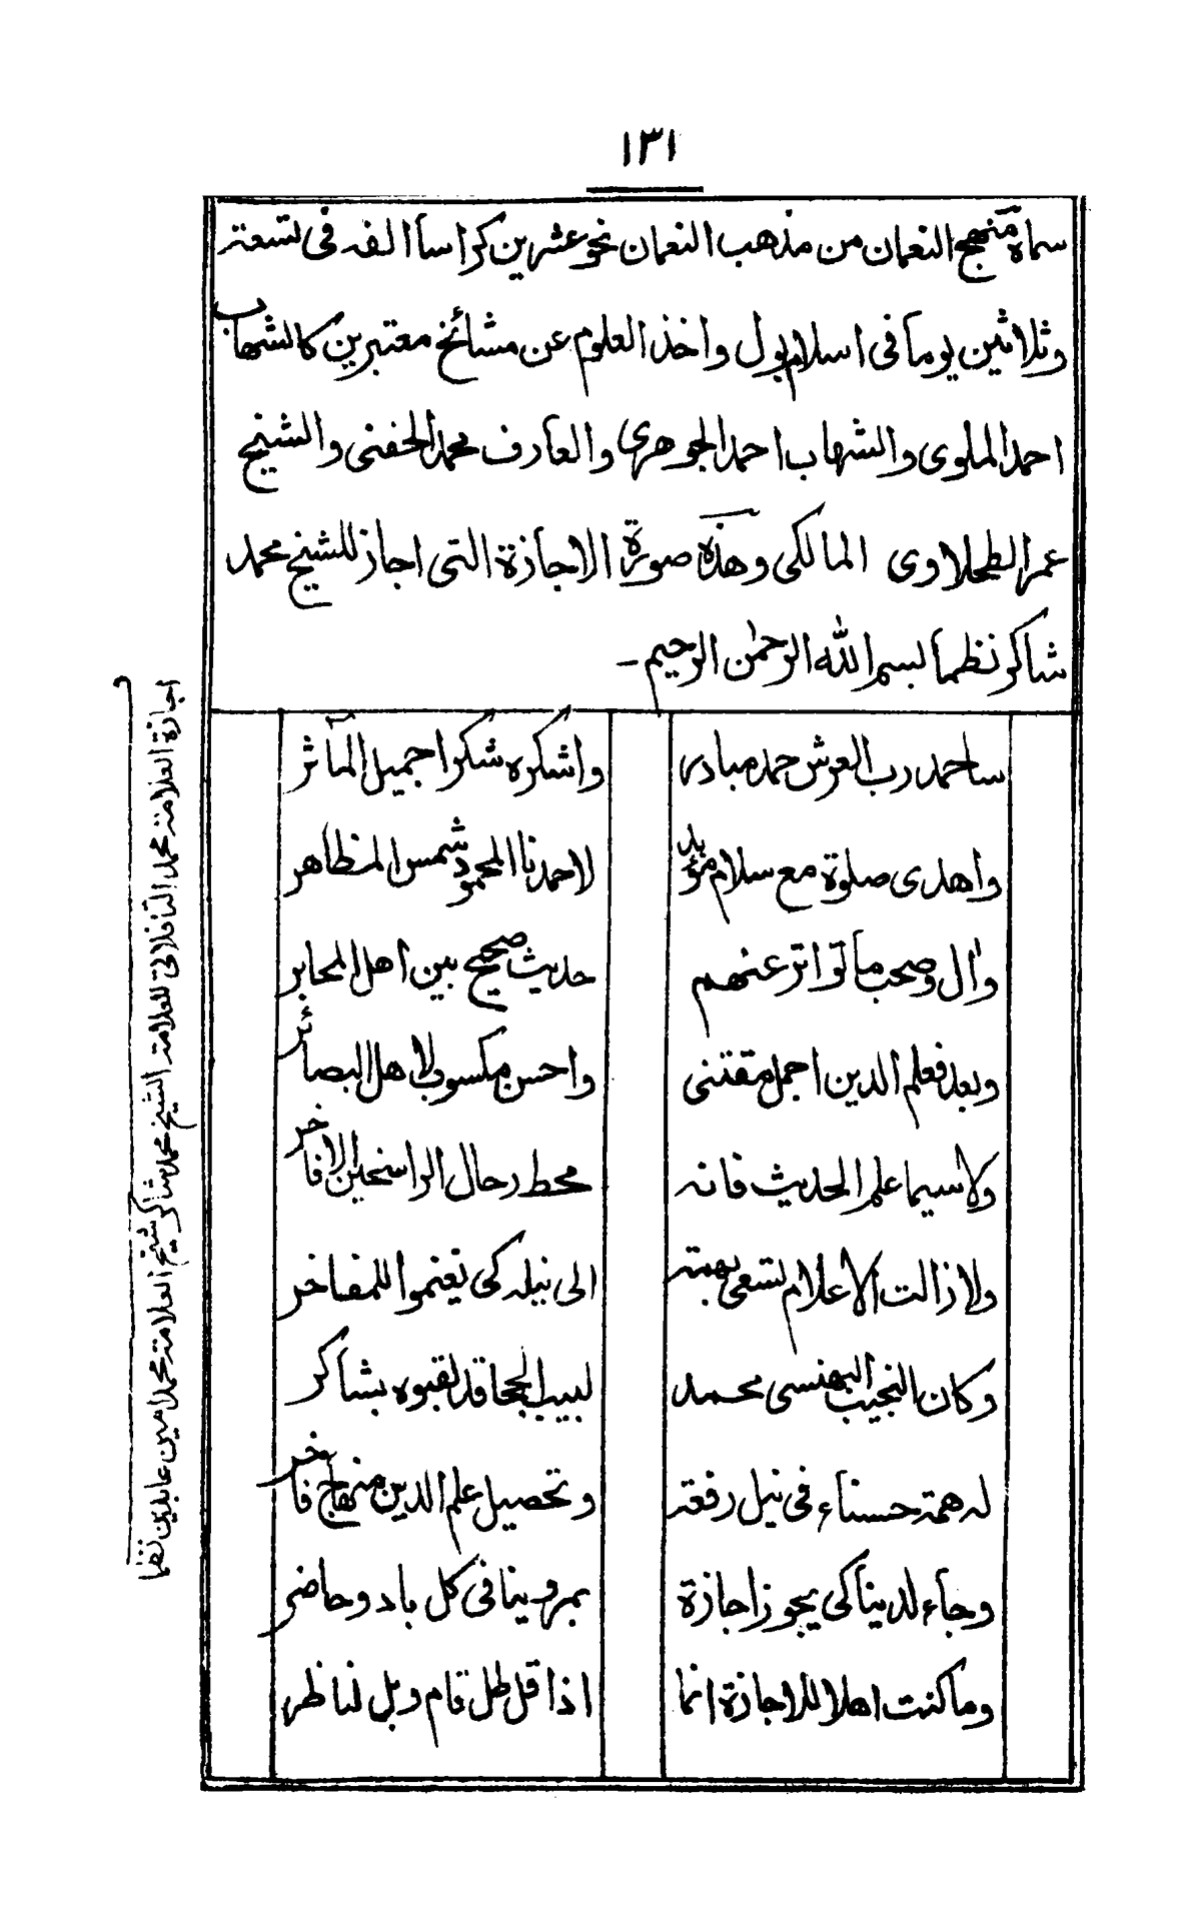 ١٣١
سماه منهج النعمان من مذهب النعمان نحو عشرين كراسا الفه فى تسعة
وثلاثين يوما فى اسلام بول واخذ العلوم عن مشائخ معتبرين كالشهاب
احمد الملوى والشهاب احمد الجوهرى والعارف محمد الحفنى والشيخ
عمر الطحلاوى المالكى وهذه صورة الاجازة التى اجاز للشيخ محمد
شاكر نظما بسم الله الرحمٰن الرحيم ـ
ساحمد رب العرش حمد مبادر واشكره شكرا جميل المآثر
واهدى صلوة مع سلام مؤبد لاحمدنا المحمود شمس المظاهر
واٰل وصحب ما تواتر عنهم حديث صحيح بين اهل المحابر
وبعد فعلم الدين اجمل مقتنى واحسن مكسوب لاهل البصائر
ولا سيما علم الحديث فانه محط رحال الراسخين الافاخر
ولا زالت الاعلام تسعى بهمته الى نيله كى يغنموا للمفاخر
وكان النجيب البهنسى محمد لبيب الحجا قد لقبوه بشاكر
له همة حسناء فى نيل رفعة وتحصيل علم الدين منهاج فاخر
وجاء لدينا كى يجوز اجازة بمروينا فى كل باد وحاضر
وما كنت اهلا للاجازة انما اذا قل طل قام وبل لناظر
اجازة العلامة محمد التافلاتى للعلامة الشيخ محمد شاكر شيخ العلامة محمد امين عابدين نظما